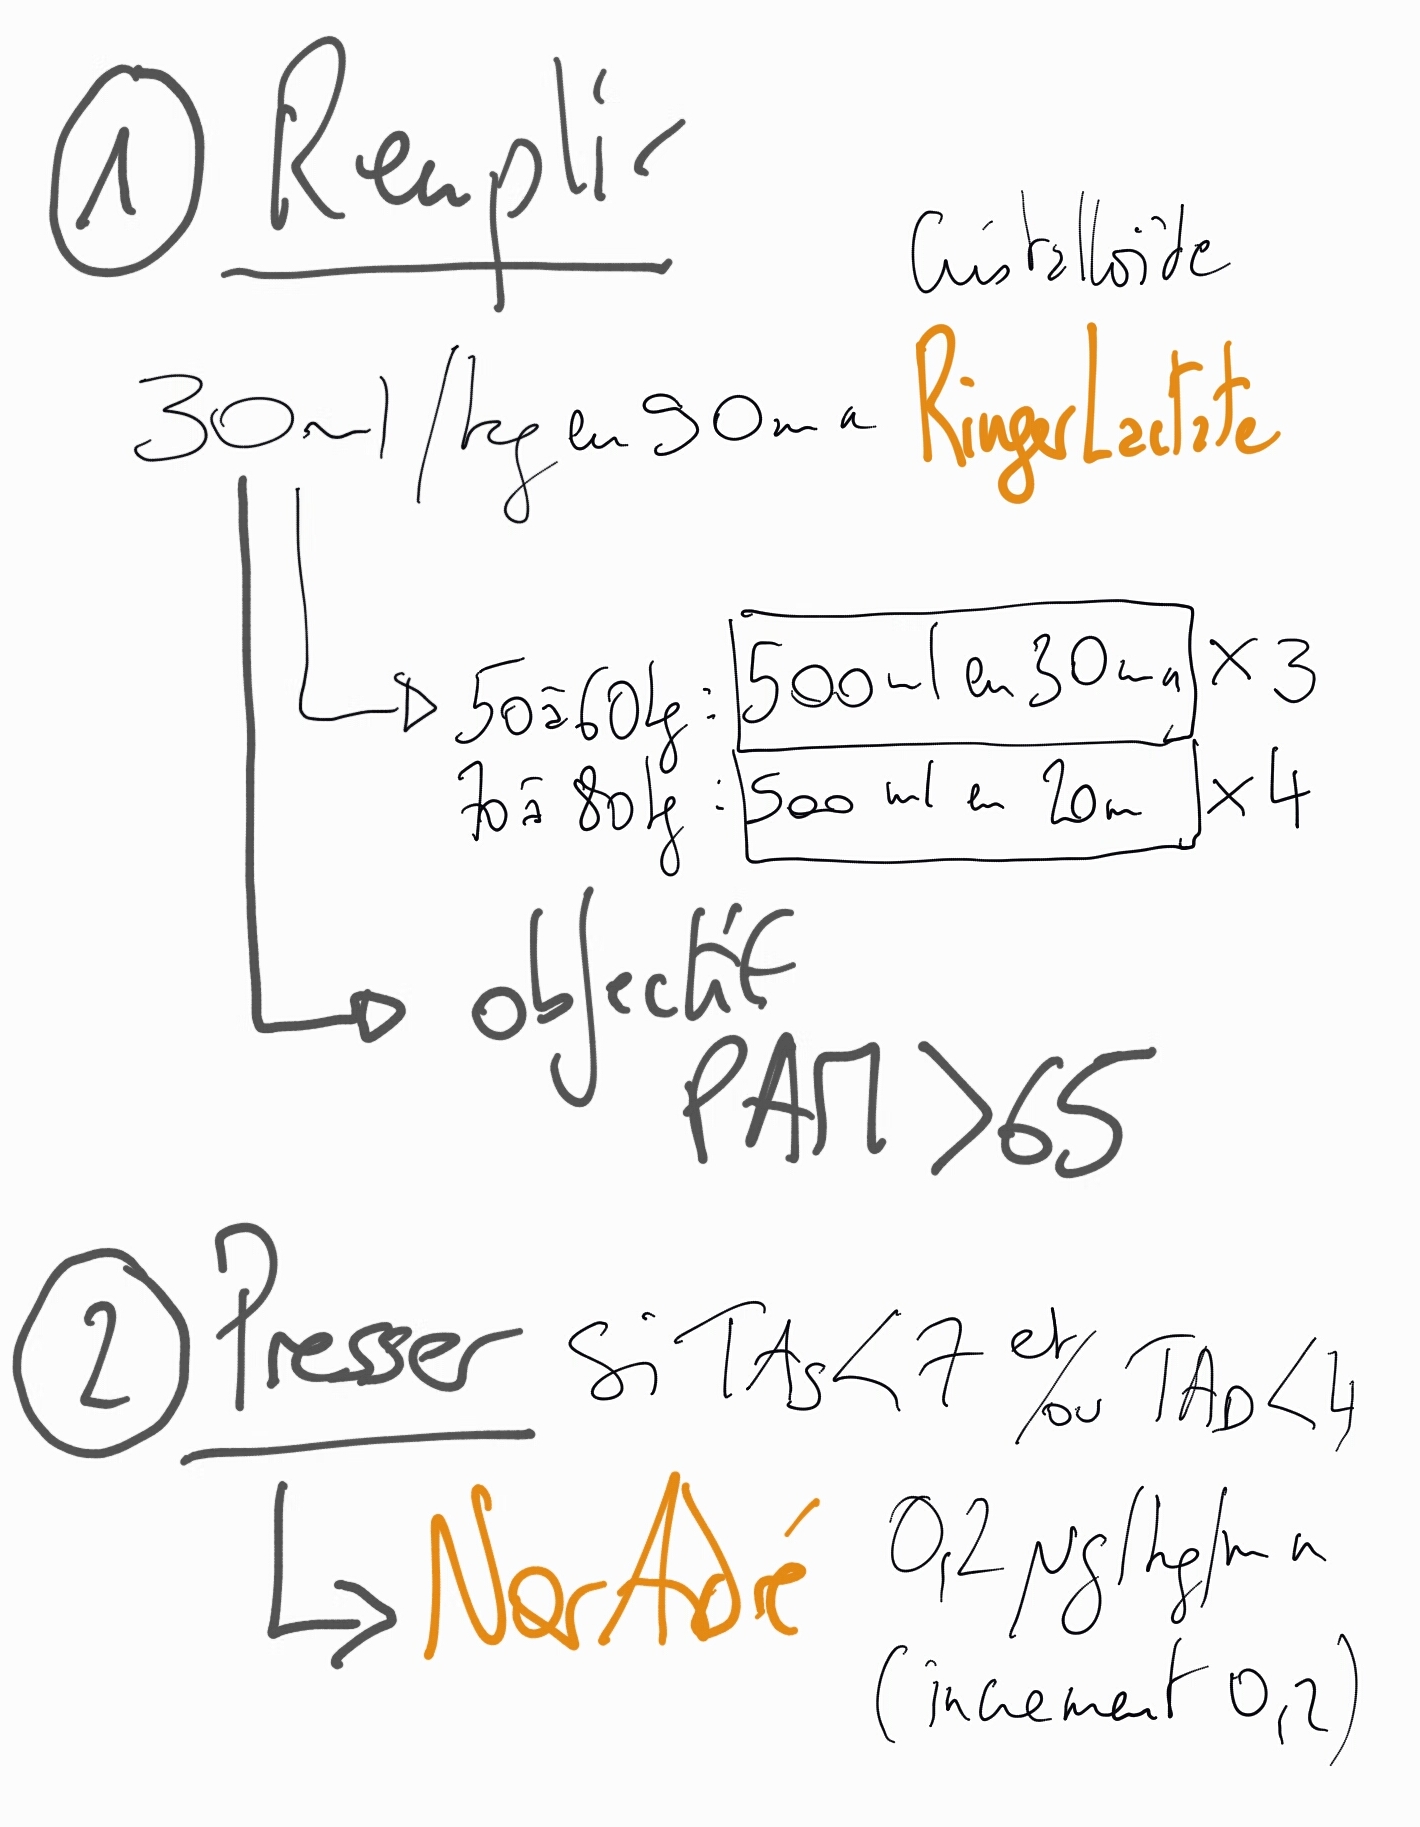 1 Remplir
Cristalloïde
30ml/kg en 90mn
Ringer Lactate
50 à 60kg : 500ml en 30mn x 3
70 à 80kg : 500 ml en 20m x 4
objectif
PAM > 65
2 Presser si TAS < 7 et/ou TAD < 4
NorAdré 0,2 µg/kg/mn
(increment 0,2)